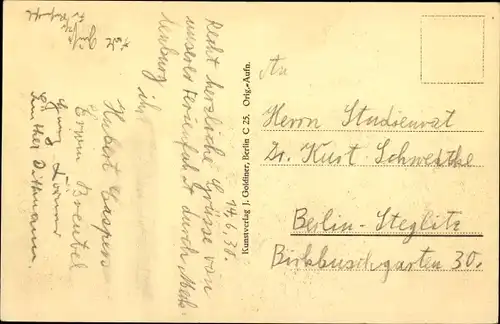 14.6.30.
Recht herzliche Grüsse von
unserer Ferienfahrt durch Meck-
lenburg
Hubert Caspers
Erwin Breubel
Günther Dittmann
Kunstverlag J. Goldiner, Berlin C 25. Orig.-Aufn.
An
Herrn Studienrat
Dr. Kurt Schwestke
Berlin-Steglitz
Birkbuschgarten 30.